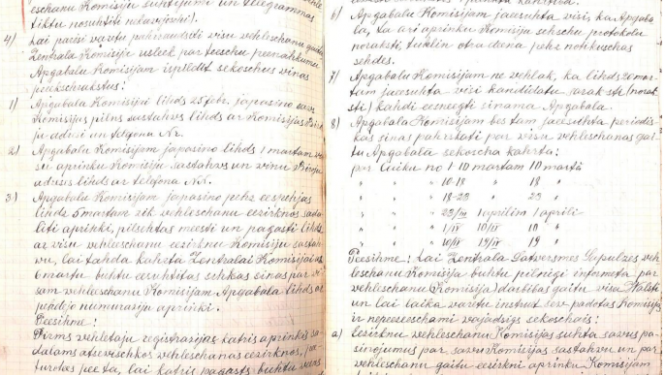 eschanu Komisiju suhtijumi un telegrammas
tiktu nosuhtiti nekawejoši).
4) Lai pareisi varetu pahrraudsit visu vehleschanu gaitu
Zentrala Komisija usleek par teeschu peenahkumu
Apgabalu Komisijam ispildit sekoschus vinas
preekschrakstus:
1) Apgabala Komisijai lihds 25 febr. japasino sava
Komisijas pilns sastahvs lihds ar Komisijas
adresi un telefona Nr.
2) Apgabalu Komisijam japasino lihds 1 martam
su aprinku Komisiju sastahvs un vinu
adreses lihds ar telefona N.N.
3) Apgabalu Komisijam japasino pehz eespehjas
lihds 5 martam zik vehleschanu eezirknos sada-
liti aprinki, pilsehtas meesti un pagasti lihds
ar visu vehleschanu eezirknu Komisiju sastah-
wu, lai tahda kahrta Zentralai Komisijai us
6 martu buhtu eeruhtitas sihkas sinas par vi-
sam vehleschanu Komisijam Apgabala lihds ar
numuraziju aprinki.
Peesihme:
Pirms vehletaju registrazijas katris aprinkis sa-
dalams atseveschkos vehleschanas eezirknos, pa-
turot peeta, lai katris pagasts buhtu
6) Apgabalu Komisijam jaeesuhta visis ka Apgaba-
la, ta ari aprinku Komisiju sehschu protokolu
noraksti, tuhlin otra deena pehz notikuschas
sehdes.
7) Apgabalu Komisijam ne vehlak, ka lihds 20 mar-
tam jaeesuhta visi kandidatu saraksti (norak-
sti) kahdi eesneegti sinama Apgabala.
8) Apgabalu Komisijam bes tam jaeesuhta periodis-
kas sinas pahrskati par visu vehleschanas gai-
tu Apgabala sekoscha kahrta:
par laiku no 1–10 martam 10 martā
" " " 10–18 " 18 "
" " " 18–23 " 23 "
" " " 23/III 1 aprilim 1 aprili
" " " 1/IV 10/IV 10 "
" " " 10/IV 19/IV 19 "
Peesihme: Lai Zentrala Satversmes Sapulzes veh-
leschanu Komisija buhtu pilnigi informeta par
vehleschanu Komisiju darbibas gaitu visa Valsti
un lai laika varetu instruet sev padotas Komisijas
ir nepeeeschami vajadsigs sekoschais:
a) Eezirknu vehleschanu Komisijas suhta savus pa-
sinojumus par savu Komisijas sastahvu un par
vehleschanu gaitu eezirkni aprinku Komisijam